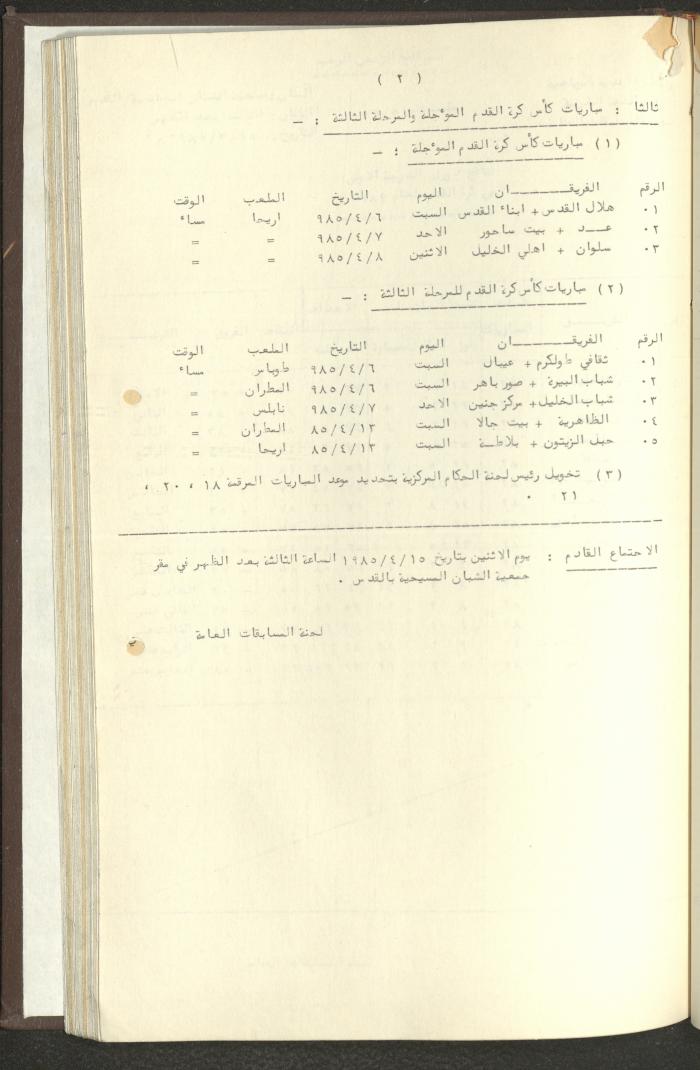 ( ٢ )
ثالثا : مباريات كأس كرة القدم المؤجلة والمرحلة الثالثة : ــ
(١) مباريات كأس كرة القدم المؤجلة : ــ
الرقم الفريقــــــــان اليوم التاريخ الملعب الوقت
٠١ هلال القدس + ابناء القدس السبت ٩٨٥/٤/٦ اريحا مساء
٠٢ عـــد + بيت ساحور الاحد ٩٨٥/٤/٧ = =
٠٣ سلوان + اهلي الخليل الاثنين ٩٨٥/٤/٨ = =
(٢) مباريات كأس كرة القدم للمرحلة الثالثة : ــ
الرقم الفريقــــــــان اليوم التاريخ الملعب الوقت
٠١ ثقافي طولكرم + عيبال السبت ٩٨٥/٤/٦ طوباس مساء
٠٢ شباب البيرة + صور باهر السبت ٩٨٥/٤/٦ المطران =
٠٣ شباب الخليل + مركز جنين الاحد ٩٨٥/٤/٧ نابلس =
٠٤ الظاهرية + بيت جالا السبت ٨٥/٤/١٣ المطران =
٠٥ جبل الزيتون + بلاطــة السبت ٨٥/٤/١٣ اريحا =
(٣) تخويل رئيس لجنة الحكام المركزية بتحديد موعد المباريات المرقمة ١٨ ، ٢٠ ،
٢١ ٠
الاجتماع القادم : يوم الاثنين بتاريخ ١٩٨٥/٤/١٥ الساعة الثالثة بعد الظهر في مقر
جمعية الشبان المسيحية بالقدس ٠
لجنة المسابقات العامة